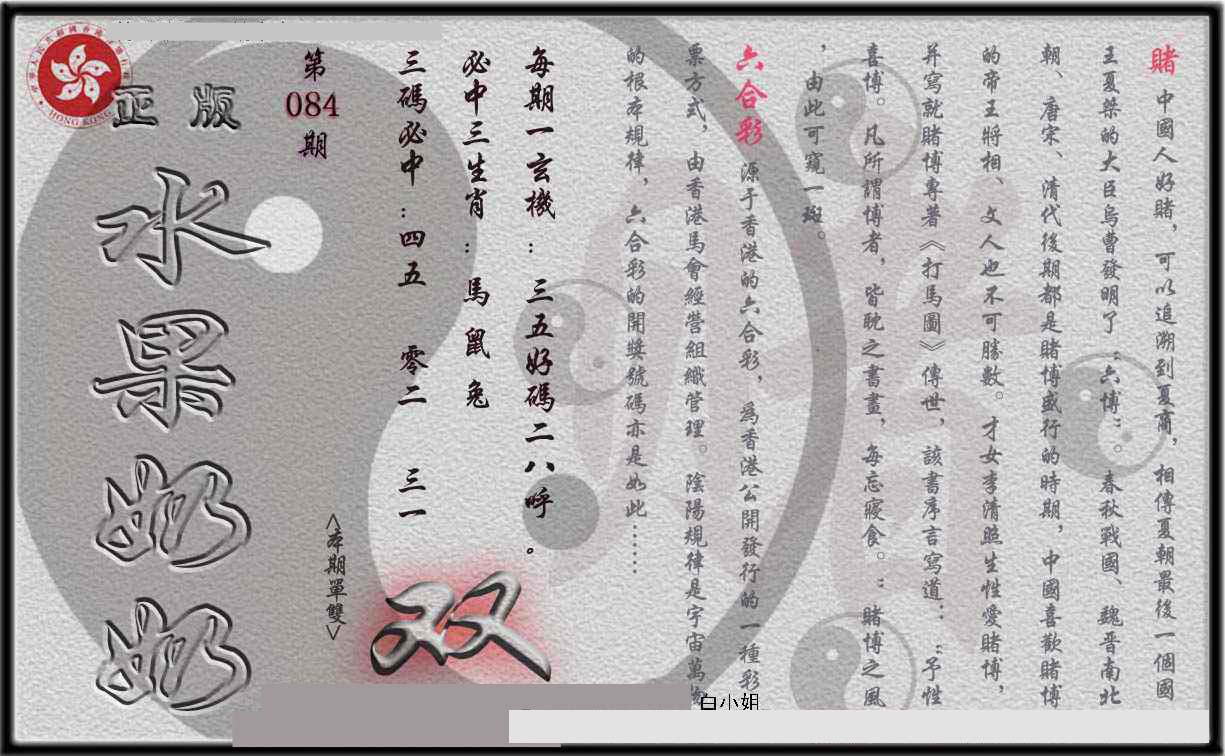 賭 中國人好賭，可以追溯到夏商，相傳夏朝最後一個國
王夏桀的大臣烏曹發明了“六博”。春秋戰國、魏晋南北
朝、唐宋、清代後期都是賭博盛行的時期，中國喜歡賭博
的帝王將相、文人也不可勝數。才女李清照生性愛賭博，
并寫就賭博專著《打馬圖》傳世，該書序言寫道：“予性
喜博。凡所謂博者，皆耽之書畫，每忘寢食。”賭博之風
，由此可窺一斑。
六合彩 源于香港的六合彩，為香港公開發行的一種彩
票方式，由香港馬會經營組織管理。陰陽規律是宇宙萬物
的根本規律，六合彩的開獎號碼亦是如此……
每期一玄機：三五好碼二八呼。
必中三生肖：馬鼠兔
三碼必中：四五 零二 三一
第084期
<本期單雙>
双
正版
水果奶奶
HONG KONG
白小姐